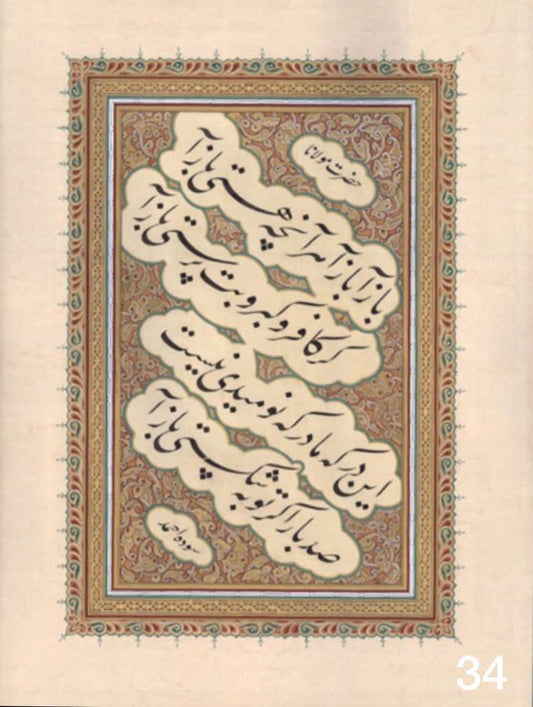 حضرت مولانا
بازآ بازآ هر آنچه هستی بازآ
گر کافر و گبر و بت پرستی بازآ
این درگه ما درگه نومیدی نیست
صد بار اگر توبه شکستی بازآ
احمد
34